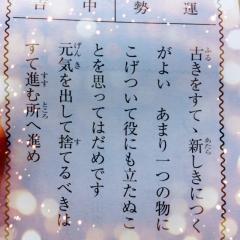 運勢 中吉
古きをすてゝ新しきにつく
がよい あまり一つの物に
こげついて役にも立たぬこ
とを思ってはだめです
元気を出して捨てるべきは
すて進む所へ進め
ふる
あたら
げんき
す
すす
ところ